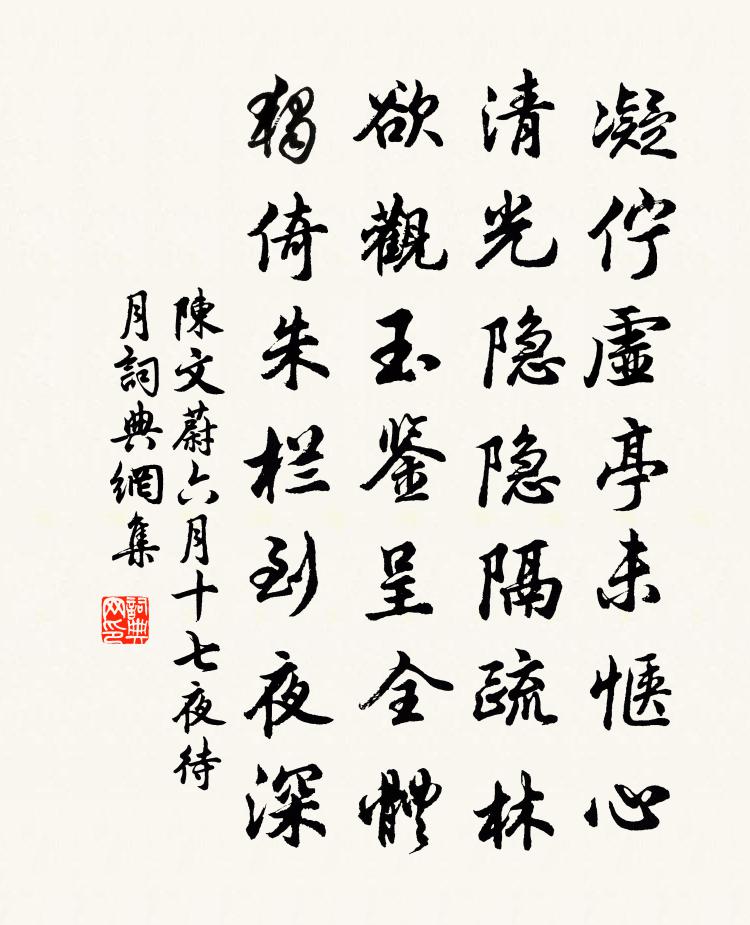 凝佇虛亭未愜心
清光隐隐隔疏林
欲觀玉鉴呈全體
獨倚朱栏到夜深
陳文蔚六月十七夜待
月詞典網集
詞典
网印